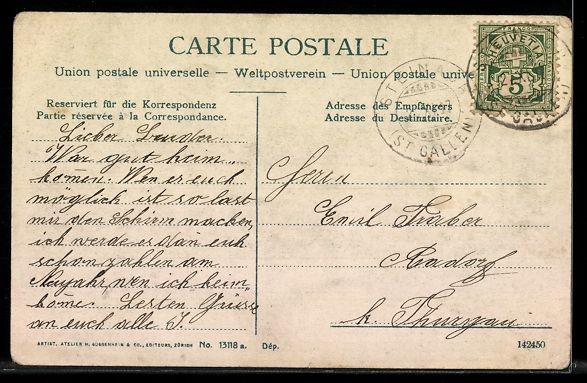 CARTE POSTALE
Union postale universelle – Weltpostverein – Union postale unive
Reserviert für die Korrespondenz
Partie réservée à la Correspondance.
Adresse des Empfängers
Adresse du Destinataire.
HELVETIA
FRANCO
5
STEIN
(ST GALLEN)
Lieber Bruder.
War gut heim„
komen. Wen es euch
möglich ist so last
mir den Schirm macken,
ich werde es dan euh
schon zahlen am
Neujahr, wen ich heim„
kome. Besten Grüsse
an euch alle J.
Herrn
Emil Traber
Aadorf
k. Thurgau
ARTIST. ATELIER H. GUGGENHEIM & CO., EDITEURS, ZÜRICH No. 13118 a. Dép. 142450